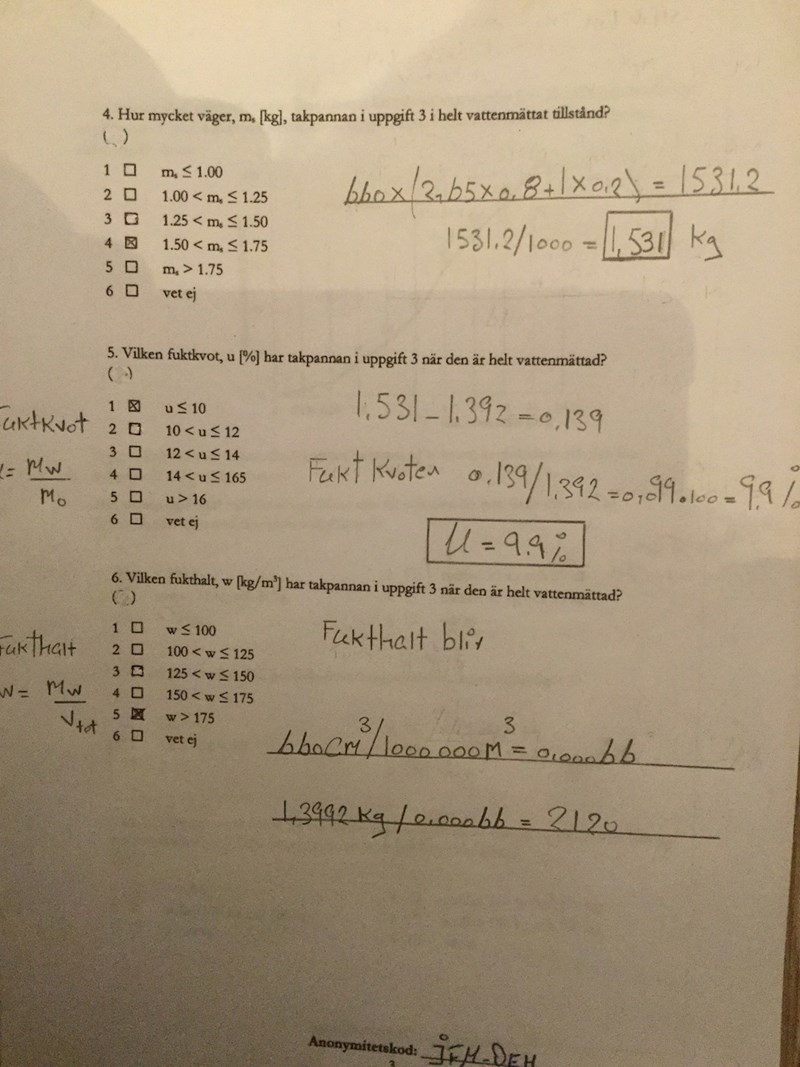 4. Hur mycket väger, mₛ [kg], takpannan i uppgift 3 i helt vattenmättat tillstånd?
( )
1 ☐ mₛ ≤ 1.00
2 ☐ 1.00 < mₛ ≤ 1.25
3 ☐ 1.25 < mₛ ≤ 1.50
4 ☒ 1.50 < mₛ ≤ 1.75
5 ☐ mₛ > 1.75
6 ☐ vet ej
660 x (2,65 x 0.8 + 1 x 0.2) = 1531.2
1531.2/1000 = 1,531 kg
5. Vilken fuktkvot, u [%] har takpannan i uppgift 3 när den är helt vattenmättad?
( )
1 ☒ u ≤ 10
2 ☐ 10 < u ≤ 12
3 ☐ 12 < u ≤ 14
4 ☐ 14 < u ≤ 165
5 ☐ u > 16
6 ☐ vet ej
Fuktkvot
= Mw / Mo
1,531 - 1,392 = 0,139
Fukt Kvoten 0,139/1,392 = 0,099.100 = 9,9 %
U = 9.9%
6. Vilken fukthalt, w [kg/m³] har takpannan i uppgift 3 när den är helt vattenmättad?
( )
1 ☐ w ≤ 100
2 ☐ 100 < w ≤ 125
3 ☐ 125 < w ≤ 150
4 ☐ 150 < w ≤ 175
5 ☒ w > 175
6 ☐ vet ej
Fukthalt
W = Mw / Vtot
Fukthalt blir
660CM³/1000 000M³ = 0,00066
1,3992 Kg / 0,00066 = 2120
Anonymitetskod:
3